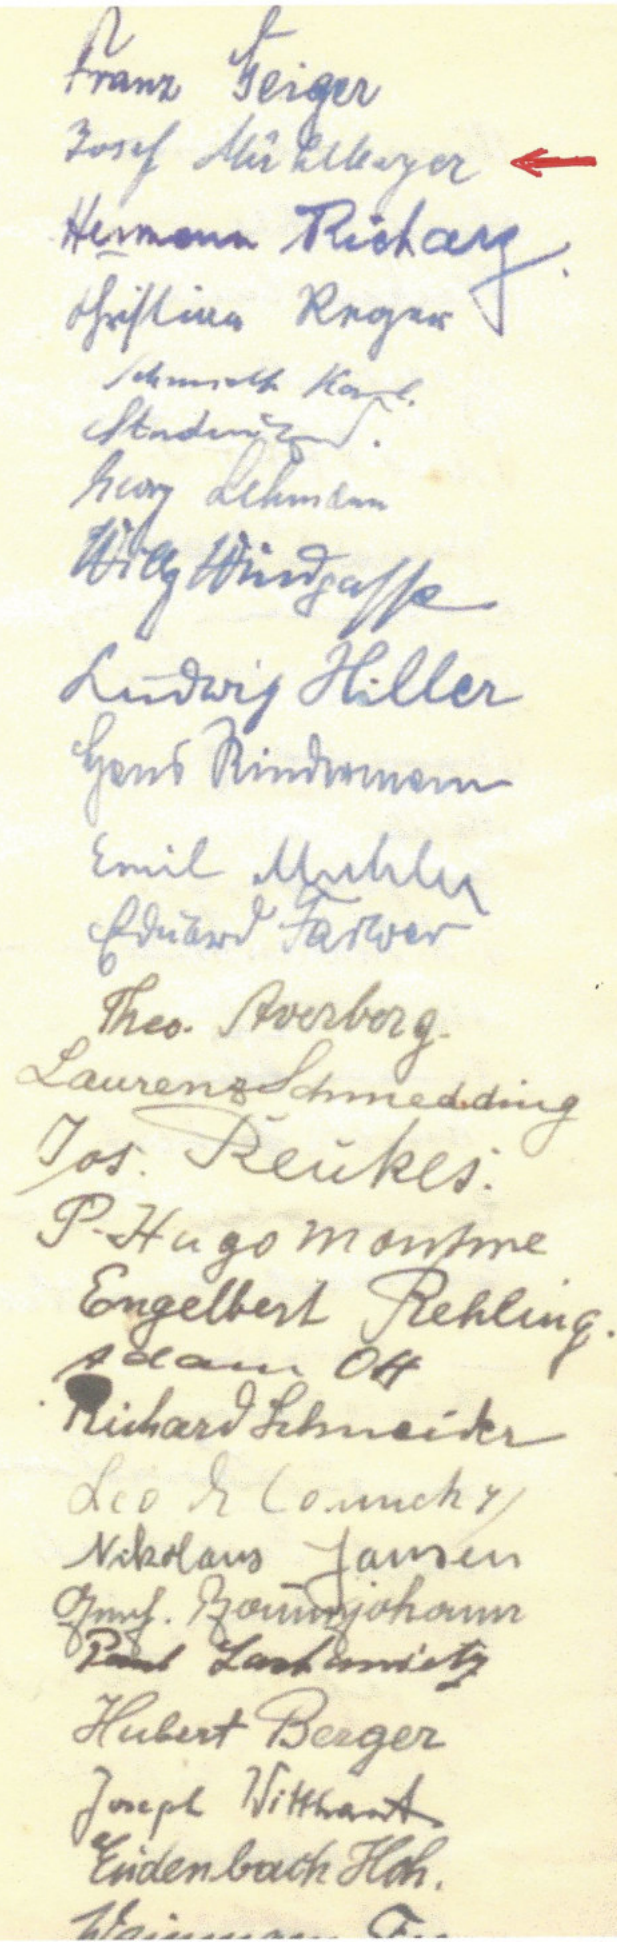 Franz Geiger
Josef Mühlmayer
Hermann Richarz.
Christian Reger
Schmidt Karl.
Georg Lehmann
Willy Windgasse
Ludwig Hiller
Hans Rindermann
Emil Muhler
Eduard Farwer
Theo. Averberg.
Laurenz Schmedding
Jos. Reukes.
P. Hugo Montwe
Engelbert Rehling.
Adam Ott
Richard Schneider
Leo
Nikolaus Jansen
Baumjohann
Paul
Hubert Berger
Joseph Witthaut
Eudenbach Hch.